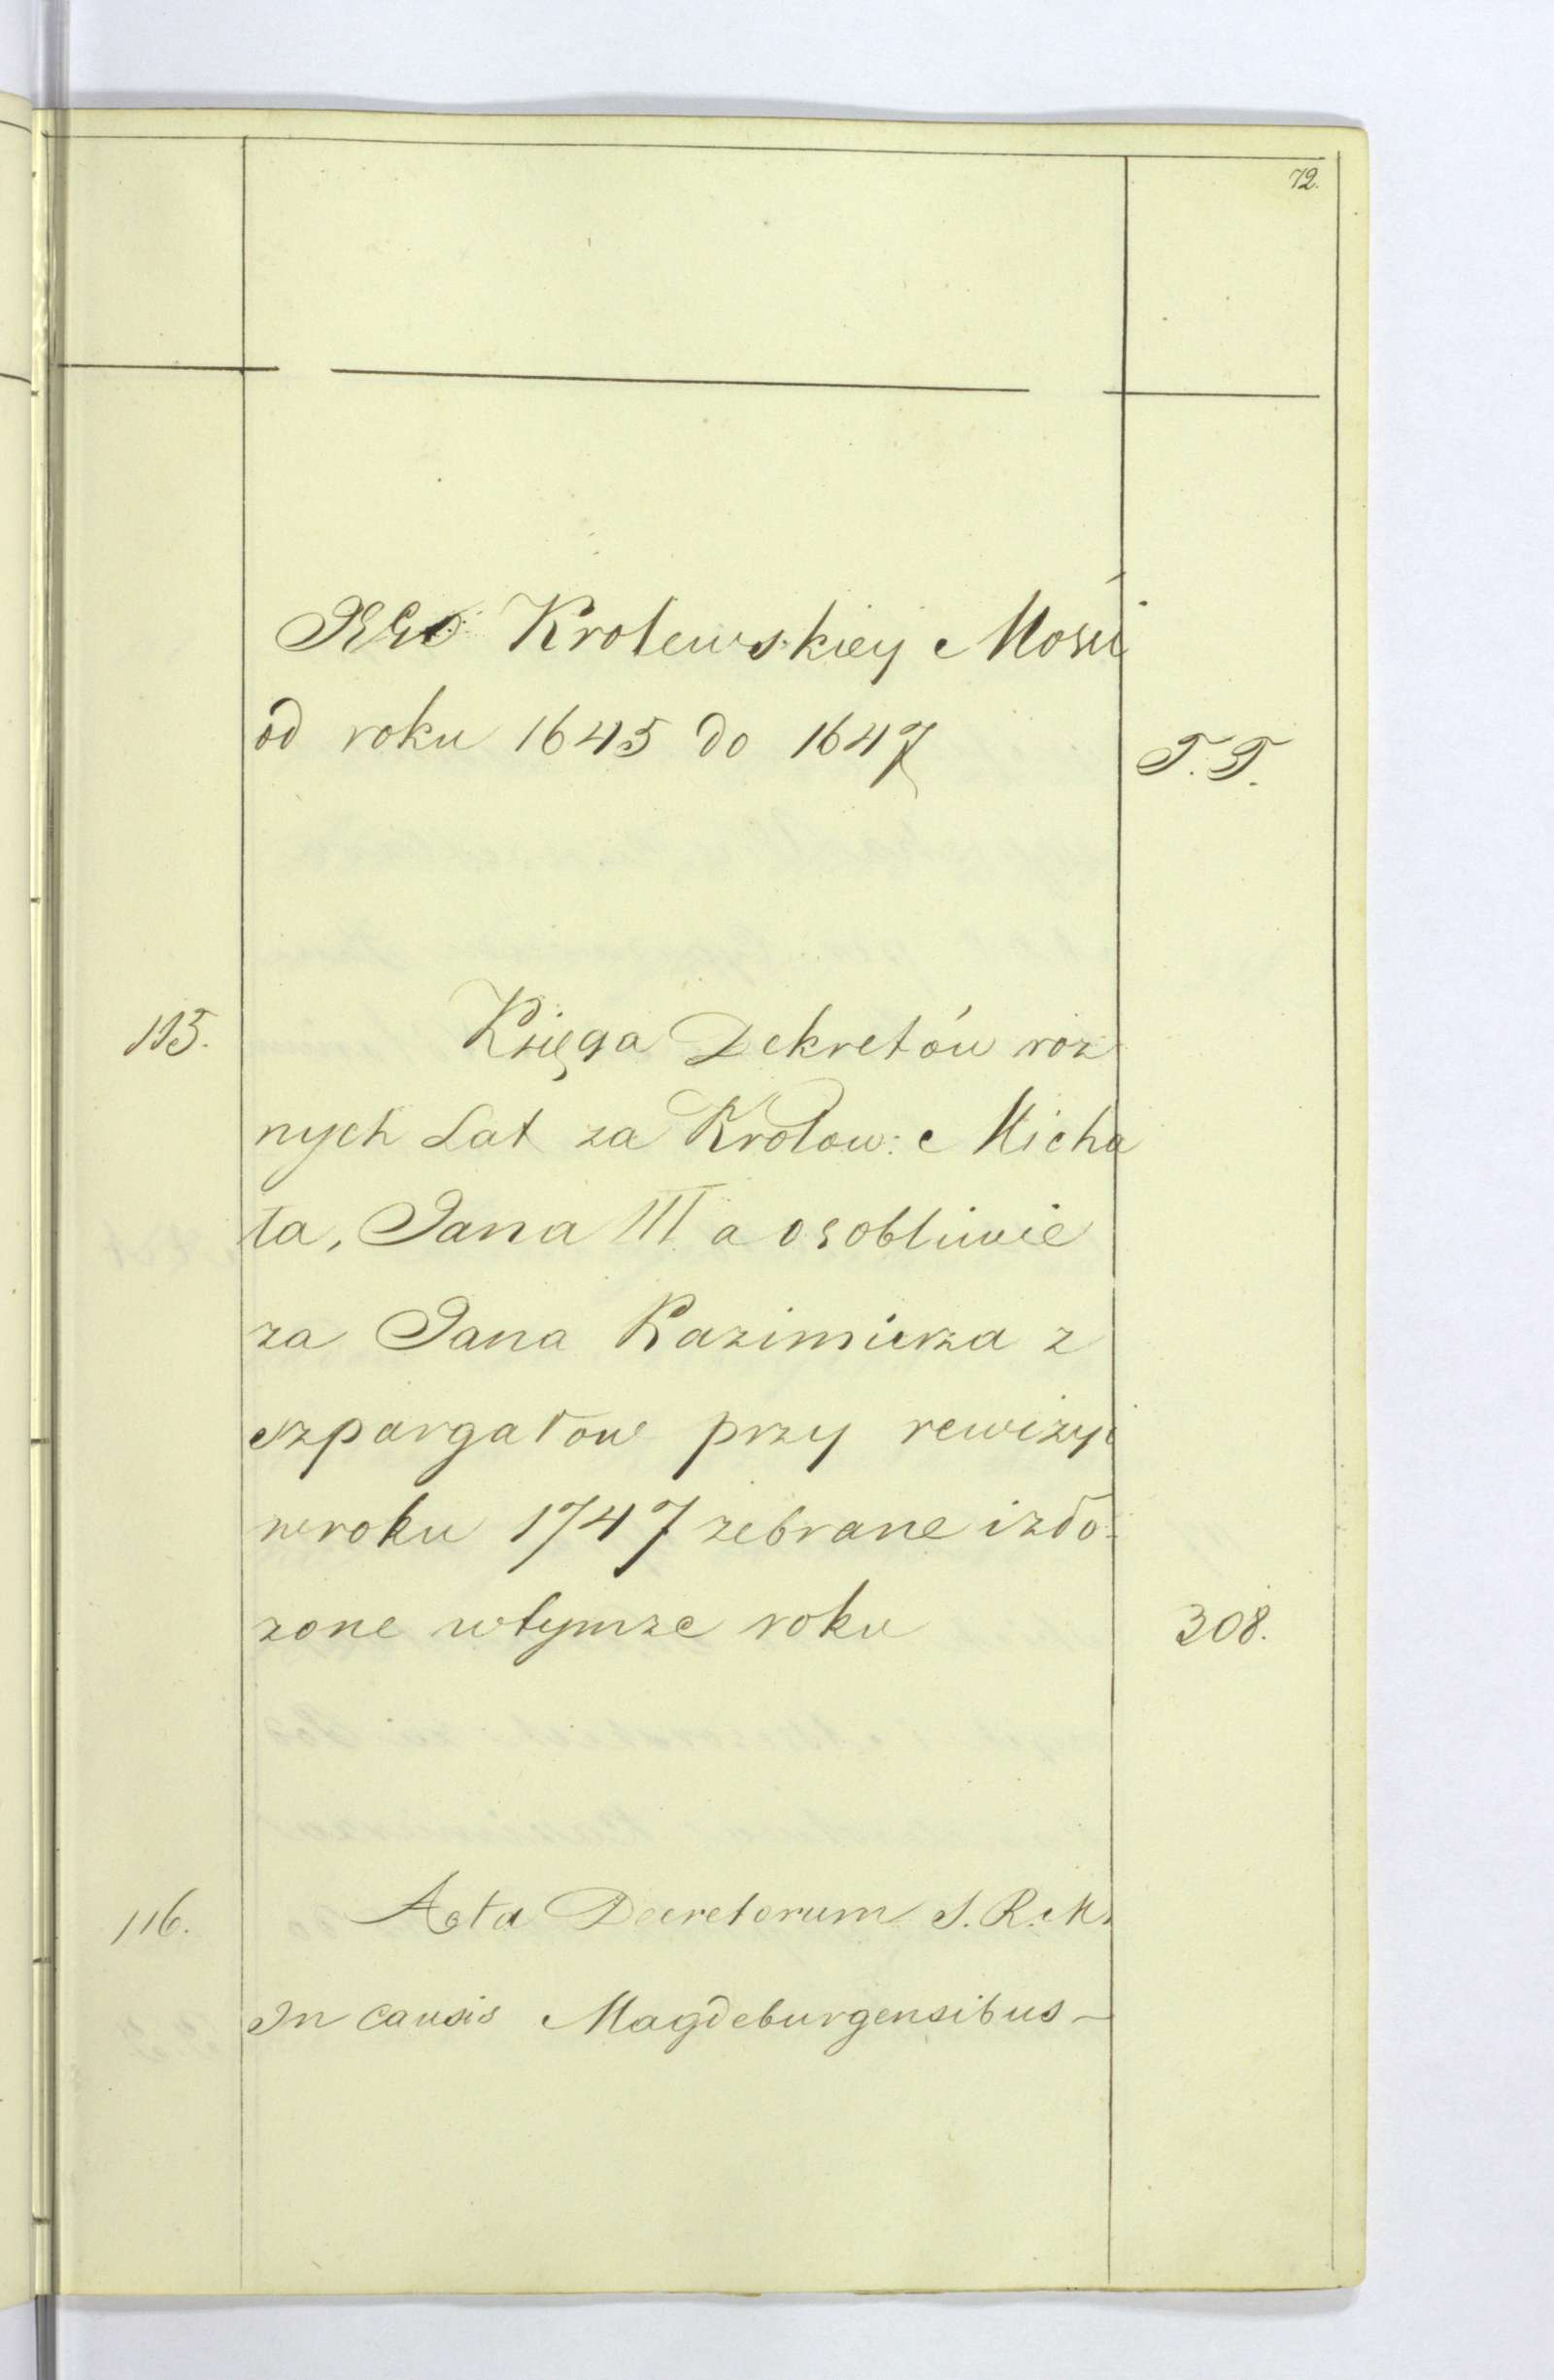 72.
JEGO Krolewskiey Mości
od roku 1645 do 1647 T. T.
115. Księga Dekretów roz
nych Lat za Krolow: Micha
ła, Jana III a osobliwie
za Jana Kazimierza z
szpargałow przy rewizyi
w roku 1747 zebrane i zło-
zone w tymze roku 308.
116. Acta Decretorum S. R. M.
In causis Magdeburgensibus –